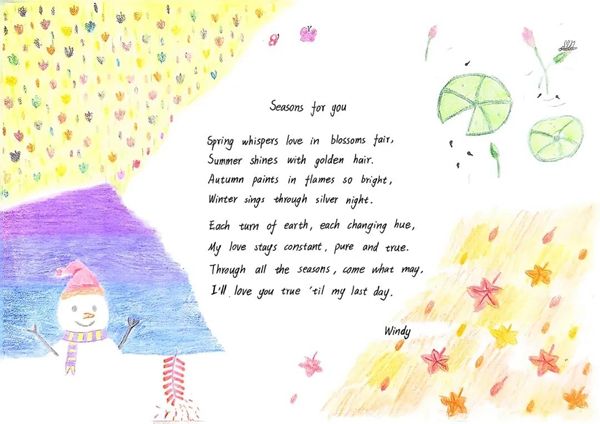 Seasons for you
Spring whispers love in blossoms fair,
Summer shines with golden hair.
Autumn paints in flames so bright,
Winter sings through silver night.
Each turn of earth, each changing hue,
My love stays constant, pure and true.
Through all the seasons, come what may,
I'll love you true 'til my last day.
Windy